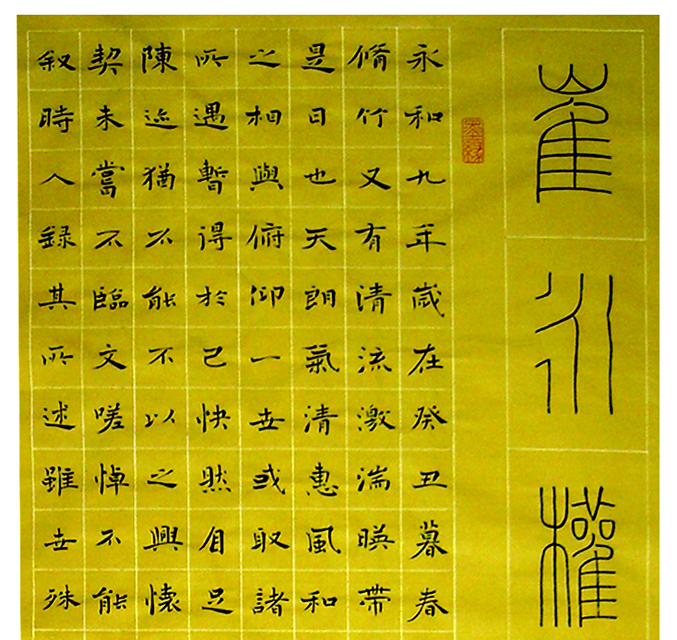 崔權
永和九年歲在癸丑暮春
脩竹又有清流激湍暎帶
是日也天朗氣清惠風和
之相與俯仰一世或取諸
所遇暫得於己快然自足
陳迹猶不能不以之興懷
契未嘗不臨文嗟悼不能
叙時人錄其所述雖世殊